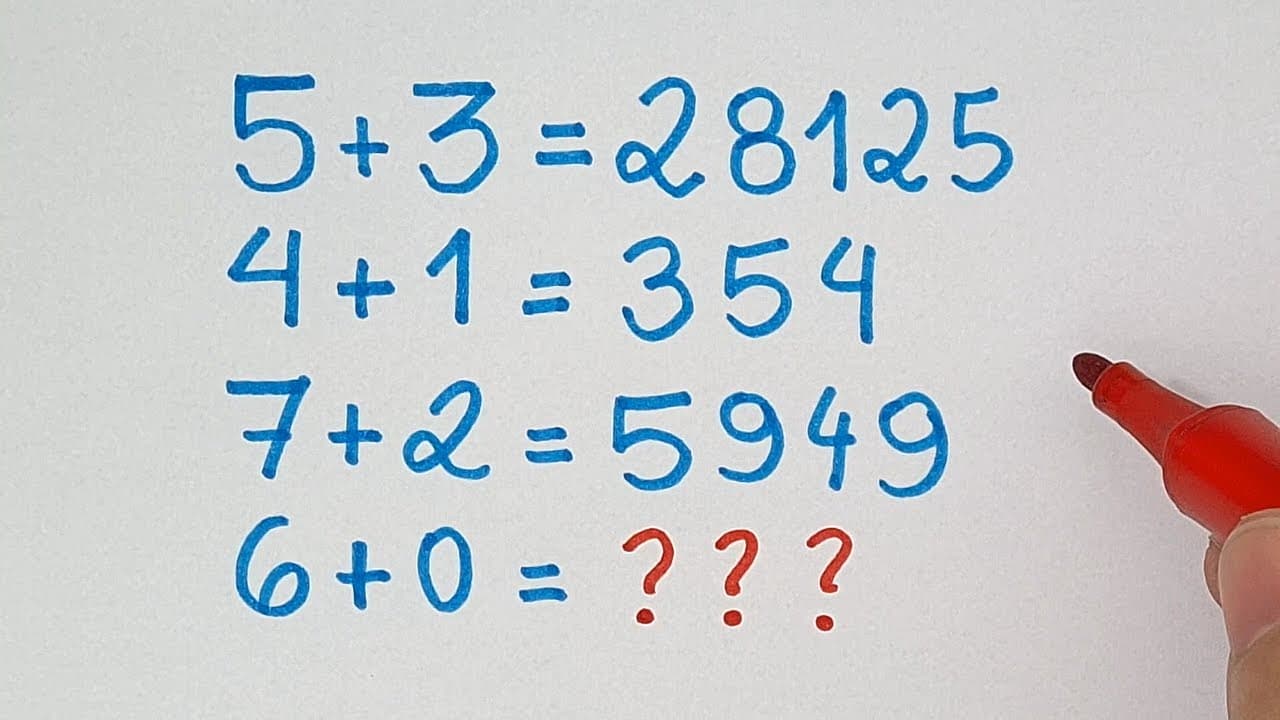 5+3=28125
4+1=354
7+2=5949
6+0=???